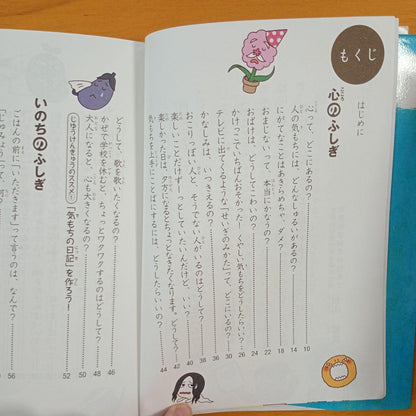 もくじ
はじめに
心のふしぎ
心って、どこにあるの？ 10
人の気もちには、どんなしゅるいがあるの？ 14
にがてなことはあきらめちゃ、ダメ？ 16
おまじないって、本当にかなうの？ 18
おばけは、どうしてこわいの？ 22
かけっこでいちばんおそかった…くやしい気もちをどうしたらいい？ 24
テレビに出てくるような「せいぎのみかた」って、どこにいるの？ 26
かなしみは、いつきえるの？ 30
おこりっぽい人と、そうでない人がいるのはどうして？ 36
楽しいことだけずーっとしていたいんだけど、いい？ 38
楽しかった日は、夕方になるとちょっとなきたくなります。どうして？ 40
気もちを上手にことばにするには、どうしたらいいの？ 42
44
どうして、歌を歌いたくなるの？ 46
かぜで学校を休むと、ちょっとワクワクするのはどうして？ 48
大人になると、心も大きくなるの？ 50
じゆうけんきゅうのススメ①
「気もちの日記」を作ろう！ 52
いのちのふしぎ
ごはんの前に「いただきます」って言うのは、なんで？ 56